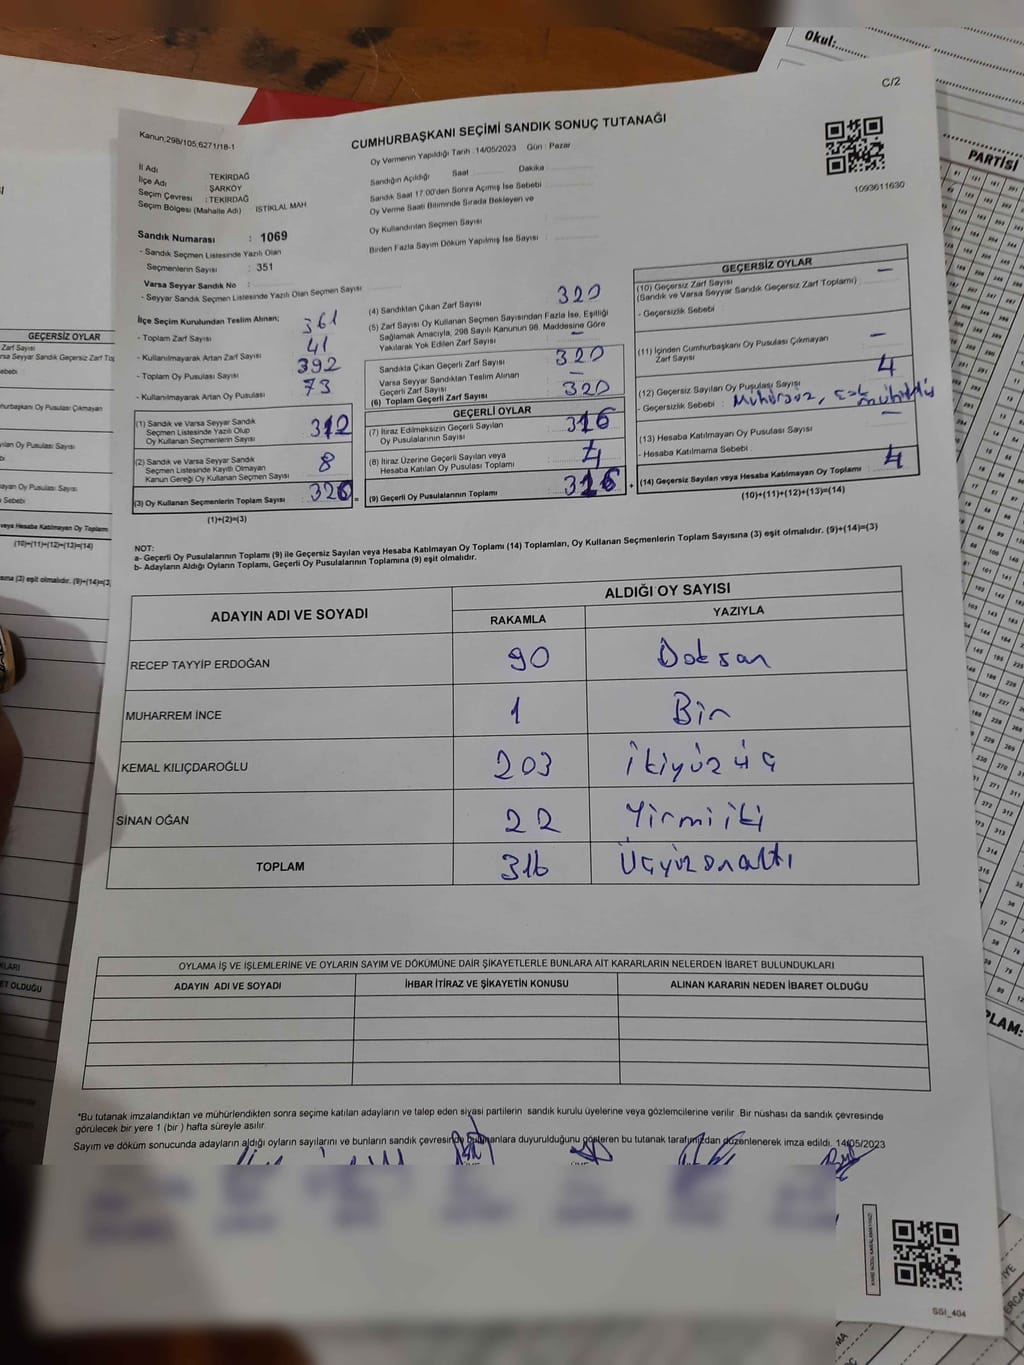 Okul:
C/2
Kanun;298/105;6271/18-1
CUMHURBAŞKANI SEÇİMİ SANDIK SONUÇ TUTANAĞI
Oy Vermenin Yapıldığı Tarih : 14/05/2023 Gün : Pazar
PARTİSİ
1093611630
İl Adı TEKİRDAĞ
İlçe Adı ŞARKÖY
Seçim Çevresi : TEKİRDAĞ
Seçim Bölgesi (Mahalle Adı) İSTİKLAL MAH
Sandığın Açıldığı Saat Dakika
Sandık Saat 17:00'den Sonra Açımış İse Sebebi
Oy Verme Saati Bitiminde Sırada Bekleyen ve
Oy Kullandırılan Seçmen Sayısı
Birden Fazla Sayım Döküm Yapılmış İse Sayısı :
Sandık Numarası : 1069
- Sandık Seçmen Listesinde Yazılı Olan
Seçmenlerin Sayısı : 351
Varsa Seyyar Sandık No :
- Seyyar Sandık Seçmen Listesinde Yazılı Olan Seçmen Sayısı
İlçe Seçim Kurulundan Teslim Alınan;
- Toplam Zarf Sayısı 361
- Kullanılmayarak Artan Zarf Sayısı 41
- Toplam Oy Pusulası Sayısı 392
- Kullanılmayarak Artan Oy Pusulası 73
(1) Sandık ve Varsa Seyyar Sandık
Seçmen Listesinde Yazılı Olup
Oy Kullanan Seçmenlerin Sayısı 312
(2) Sandık ve Varsa Seyyar Sandık
Seçmen Listesinde Kayıtlı Olmayan
Kanun Gereği Oy Kullanan Seçmen Sayısı 8
(3) Oy Kullanan Seçmenlerin Toplam Sayısı 320 =
(1)+(2)=(3)
(4) Sandıktan Çıkan Zarf Sayısı 320
(5) Zarf Sayısı Oy Kullanan Seçmen Sayısından Fazla İse, Eşitliği
Sağlamak Amacıyla, 298 Sayılı Kanunun 98. Maddesine Göre
Yakılarak Yok Edilen Zarf Sayısı —
Sandıkla Çıkan Geçerli Zarf Sayısı 320
Varsa Seyyar Sandıktan Teslim Alınan
Geçerli Zarf Sayısı —
(6) Toplam Geçerli Zarf Sayısı 320
GEÇERLİ OYLAR
(7) İtiraz Edilmeksizin Geçerli Sayılan
Oy Pusulalarının Sayısı 316
(8) İtiraz Üzerine Geçerli Sayılan veya
Hesaba Katılan Oy Pusulası Toplamı
(9) Geçerli Oy Pusulalarının Toplamı 316 +
GEÇERSİZ OYLAR
(10) Geçersiz Zarf Sayısı —
(Sandık ve Varsa Seyyar Sandık Geçersiz Zarf Toplamı) :
- Geçersizlik Sebebi :
(11) İçinden Cumhurbaşkanı Oy Pusulası Çıkmayan
Zarf Sayısı —
(12) Geçersiz Sayılan Oy Pusulası Sayısı 4
- Geçersizlik Sebebi : Mühürsüz,
(13) Hesaba Katılmayan Oy Pusulası Sayısı —
- Hesaba Katılmama Sebebi
(14) Geçersiz Sayılan veya Hesaba Katılmayan Oy Toplamı 4
(10)+(11)+(12)+(13)=(14)
NOT:
a- Geçerli Oy Pusulalarının Toplamı (9) ile Geçersiz Sayılan veya Hesaba Katılmayan Oy Toplamı (14) Toplamları, Oy Kullanan Seçmenlerin Toplam Sayısına (3) eşit olmalıdır. (9)+(14)=(3)
b- Adayların Aldığı Oyların Toplamı, Geçerli Oy Pusulalarının Toplamına (9) eşit olmalıdır.
ADAYIN ADI VE SOYADI ALDIĞI OY SAYISI
RAKAMLA YAZIYLA
RECEP TAYYİP ERDOĞAN 90 Doksan
MUHARREM İNCE 1 Bir
KEMAL KILIÇDAROĞLU 203 ikiyüz üç
SİNAN OĞAN 22 Yirmi iki
TOPLAM 316 Üçyüzonaltı
OYLAMA İŞ VE İŞLEMLERİNE VE OYLARIN SAYIM VE DÖKÜMÜNE DAİR ŞİKAYETLERLE BUNLARA AİT KARARLARIN NELERDEN İBARET BULUNDUKLARI
ADAYIN ADI VE SOYADI İHBAR İTİRAZ VE ŞİKAYETİN KONUSU ALINAN KARARIN NEDEN İBARET OLDUĞU
*Bu tutanak imzalandıktan ve mühürlendikten sonra seçime katılan adayların ve talep eden siyasi partilerin sandık kurulu üyelerine veya gözlemcilerine verilir. Bir nüshası da sandık çevresinde
görülecek bir yere 1 (bir ) hafta süreyle asılır.
Sayım ve döküm sonucunda adayların aldığı oyların sayılarını ve bunların sandık çevresinde bulunanlara duyurulduğunu gösteren bu tutanak tarafımızdan düzenlenerek imza edildi. 14/05/2023
SGI_404
GEÇERSİZ OYLAR
(10)+(11)+(12)+(13)=(14)